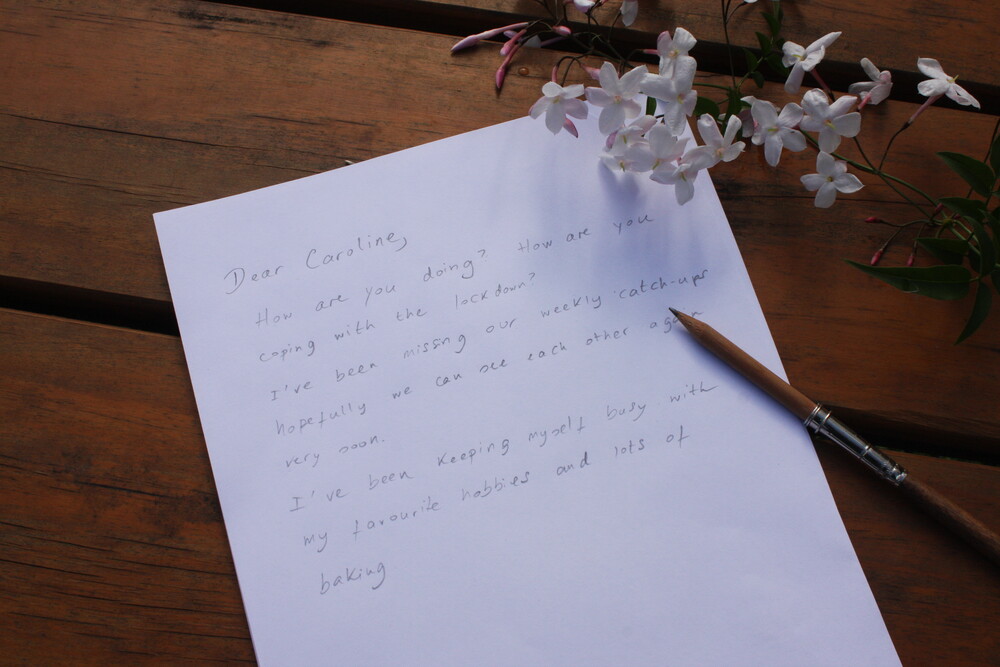 Dear Caroline,
How are you doing? How are you
coping with the lockdown?
I've been missing our weekly catch-ups
hopefully we can see each other again
very soon.
I've been keeping myself busy with
my favourite hobbies and lots of
baking